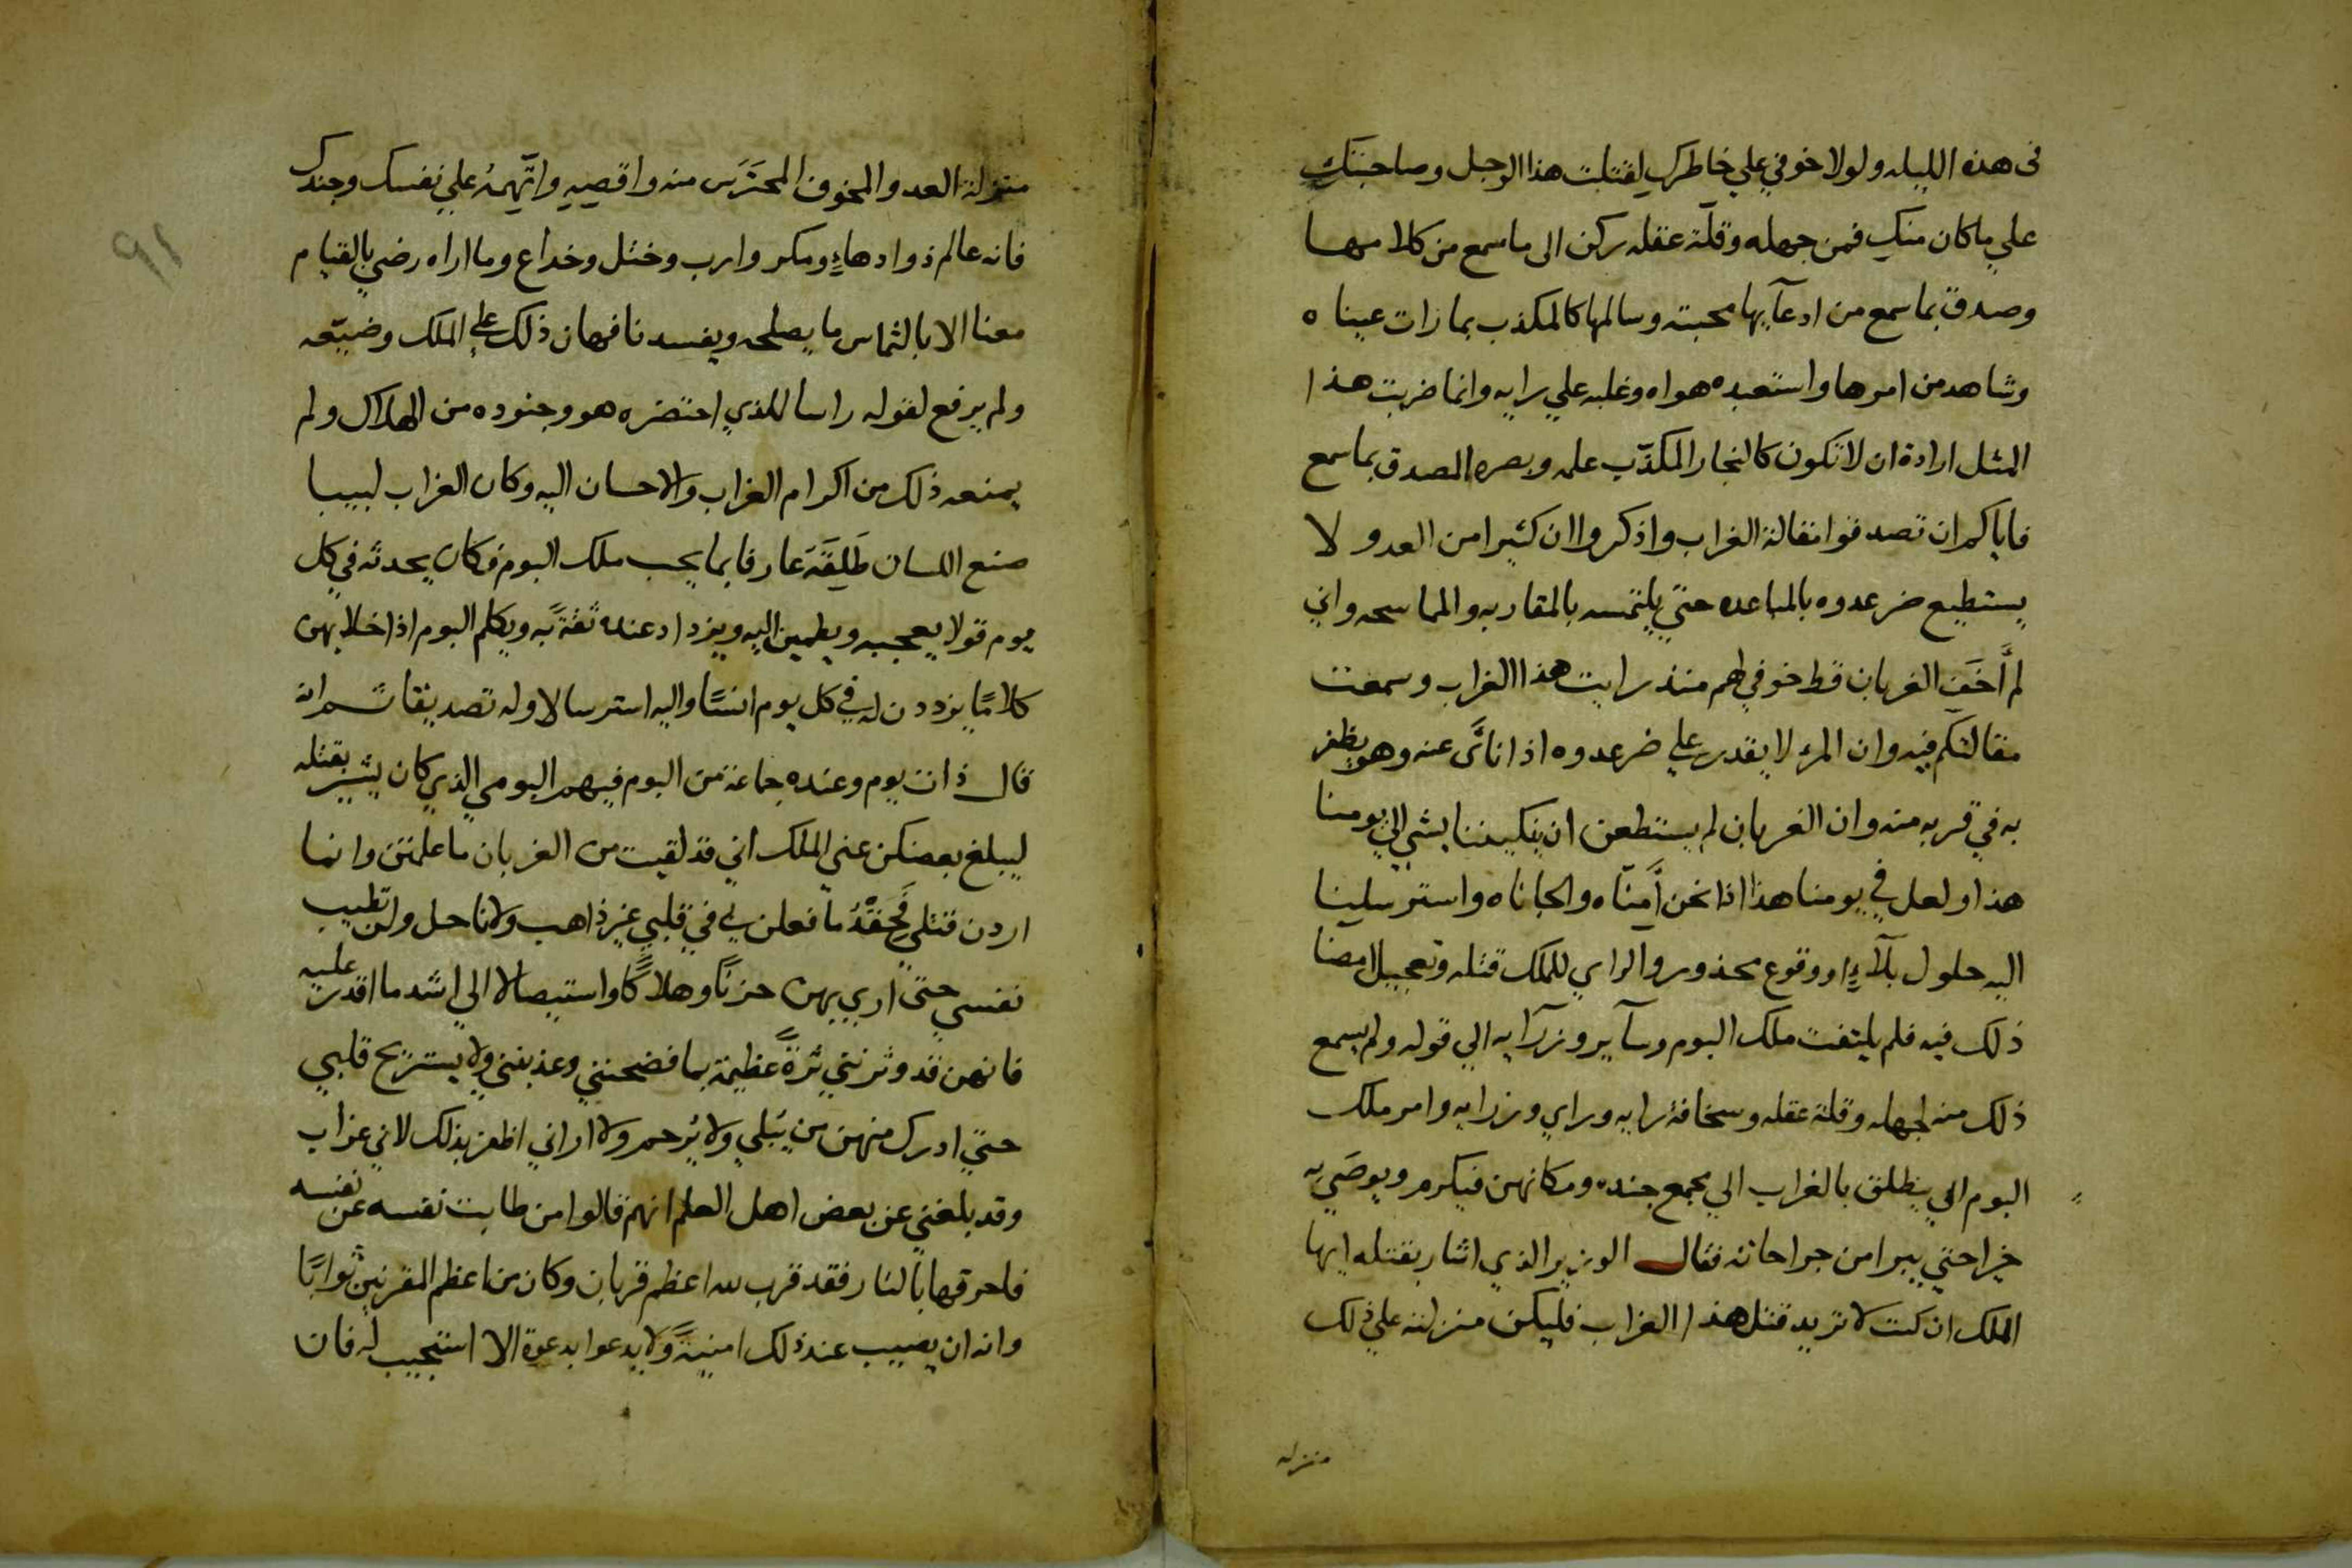 فى هذه الليله ولولا خوفي علي خاطرك لقتلت هذا الرجل وصاحبتك
علي ما كان منك فمن جهله وقلة عقله ركن الى ما سمع من كلامها
وصدق بما سمع من ادعآيها محبته وسالمها كالمكذب بما رات عيناه
وشاهد من امرها واستعبده هواه وغلبه علي رايه وانما ضربت هذا
المثل ارادة ان لا تكون كالنجار المكذب علمه وبصره المصدق بما سمع
فاياكم ان تصدقوا مقالة الغراب واذكروا ان كثيرا من العدو لا
يستطيع ضر عدوه بالمباعده حتي يلتمسه بالمقاربه والمماسحه واني
لم أخَف الغربان قط خوفي لهم منذ رايت هذا الغراب وسمعت
مقالتكم فيه وان المرء لا يقدر علي ضر عدوه اذا ناى عنه وهو يظفر
به في قربه منه وان الغربان لم يستطعن ان يكيدننا بشي الي يومنا
هذا ولعل في يومنا هذا اذا نحن أمنّاه والجاناه واسترسلينا
اليه حلول بلآءٍ او وقوع محذور والراي للملك قتله وتعجيل امضا
ذلك فيه فلم يلتفت ملك البوم وسآير وزرآيه الي قوله ولم يسمع
ذلك منه لجهله وقلة عقله وسخافة رايه وراي وزرايه وامر ملك
البوم الي ينطلق بالغراب الي مجمع جنده ومكانهن فيكرم ويوصَي به
خيرا حتي يبرا من جراحاته فقال الوزير الذي اشار بقتله ايها
الملك ان كنت لا تريد قتل هذا الغراب فليكن منزلته علي ذلك
منزله
٩١
منزلة العدو المخوف المحترس منه واقصيه واتّهمهُ علي نفسك وجندك
فانه عالم ذو ادهاءٍ ومكر وارب وختل وخداع وما اراه رضي بالقيام
معنا الا بالتماس ما يصلحه ويفسدنا فهان ذلك علي الملك وضيّعه
ولم يرفع لقوله راسا للذي احتضره هو وجنوده من الهلاك ولم
يمنعه ذلك من اكرام الغراب والاحسان اليه وكان الغراب لبيبا
صنع اللسان طَلِقَهَ عارفا بما يحب ملك البوم فكان يحدثه في كل
يوم قولا يعجبه ويطمين اليه ويزداد عنده ثقةً به ويكلم البوم اذا خلا بهن
كلامًا يزددن له في كل يوم انسًا واليه استرسالا وله تصديقا ثم انه
قال ذات يوم وعنده جماعة من البوم فيهم البومي الذي كان يشير بقتله
ليبلغ بعضكن عني الملك اني قد لقيت من الغربان ما علمتن وانما
اردن قتلي فحِقدُ ما فعلن بي في قلبي غير ذاهب ولا ناحل ولن تطيب
نفسي حتى اري بهن حزنًا وهلاكًا واستيصالا الي اشد ما اقدر عليه
فانهن قد وترنني ترةً عظيمة بما فضحنني وعذبنني ولا يستريح قلبي
حتي ادرك منهن من يَبلي ولا يُرحم ولا اراني اظفر بذلك لاني غراب
وقد بلغني عن بعض اهل العلم انهم قالوا من طابت نفسه عن نفسه
فاحرقها بالنار فقد قرب لله اعظم قربان وكان من اعظم المقربين ثوابًا
وانه ان يصيب عند ذلك امنيةً ولا يدعوا بدعوة الا استجيب له فان